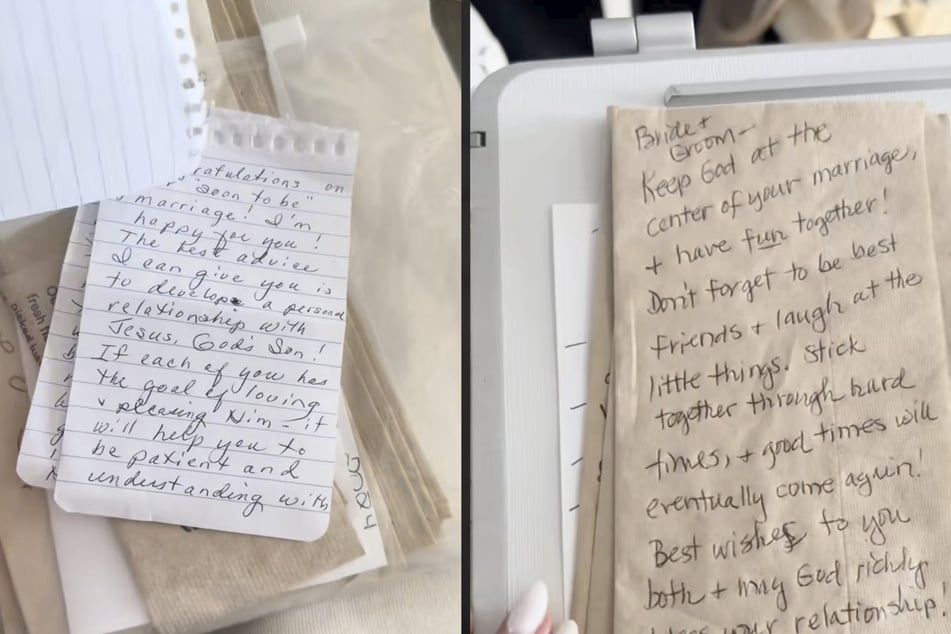 ratulations on
"soon to be"
marriage! I'm
happy for you!
The best advice
I can give you is
to develop a personal
relationship with
Jesus, God's Son!
If each of you has
the goal of loving
& pleasing Him - it
will help you to
be patient and
understanding with
fresh
picked
Bride +
Groom -
Keep God at the
center of your marriage,
+ have fun together!
Don't forget to be best
friends + laugh at the
little things. Stick
together through hard
times, + good times will
eventually come again!
Best wishes to you
both + may God richly
your relationship!